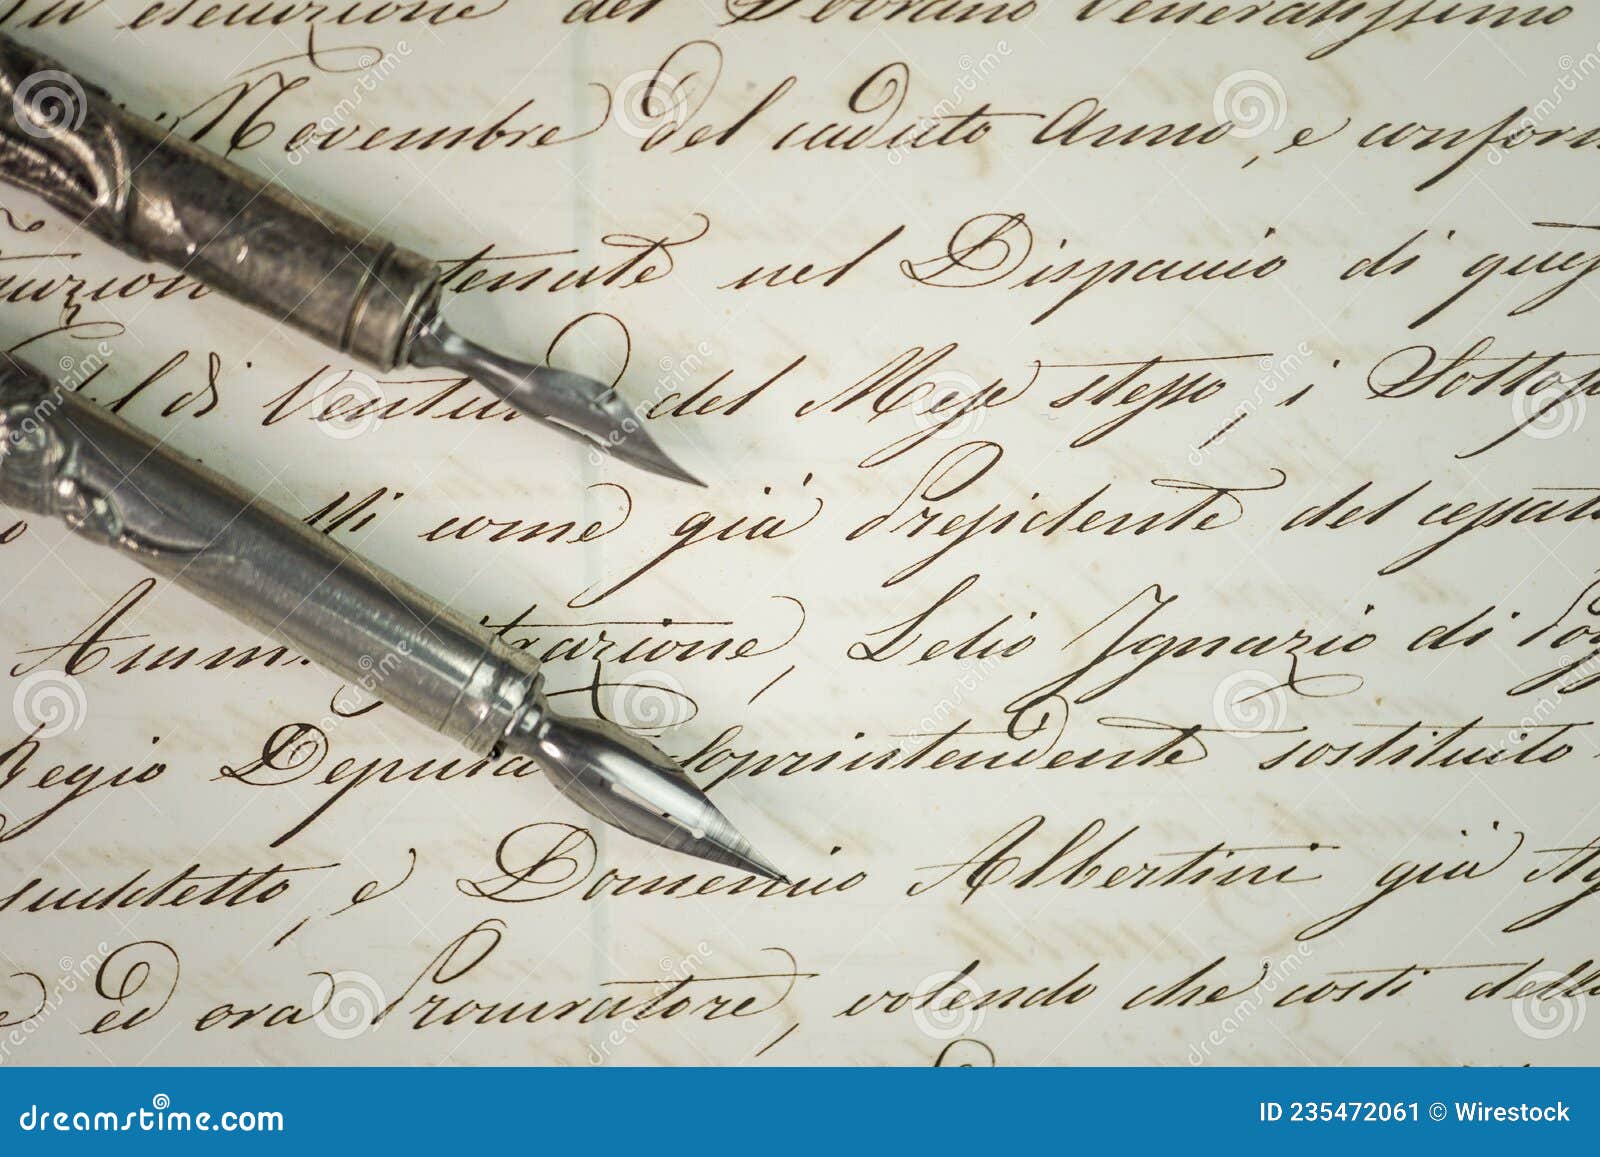 esecuzione del Sovrano Veneratissimo
Novembre del caduto Anno, e conform
tenute nel Dispaccio di ques
del Mese stesso, i Sottos
come già Presidente del cessato
Amm trazione, Lelio Ignazio di Pog
Regio Deputa Soprintendente sostituito
suddetto, e Domenico Albertini già Ag
ed ora Procuratore, volendo che costi dell
dreamstime.com
ID 235472061 © Wirestock